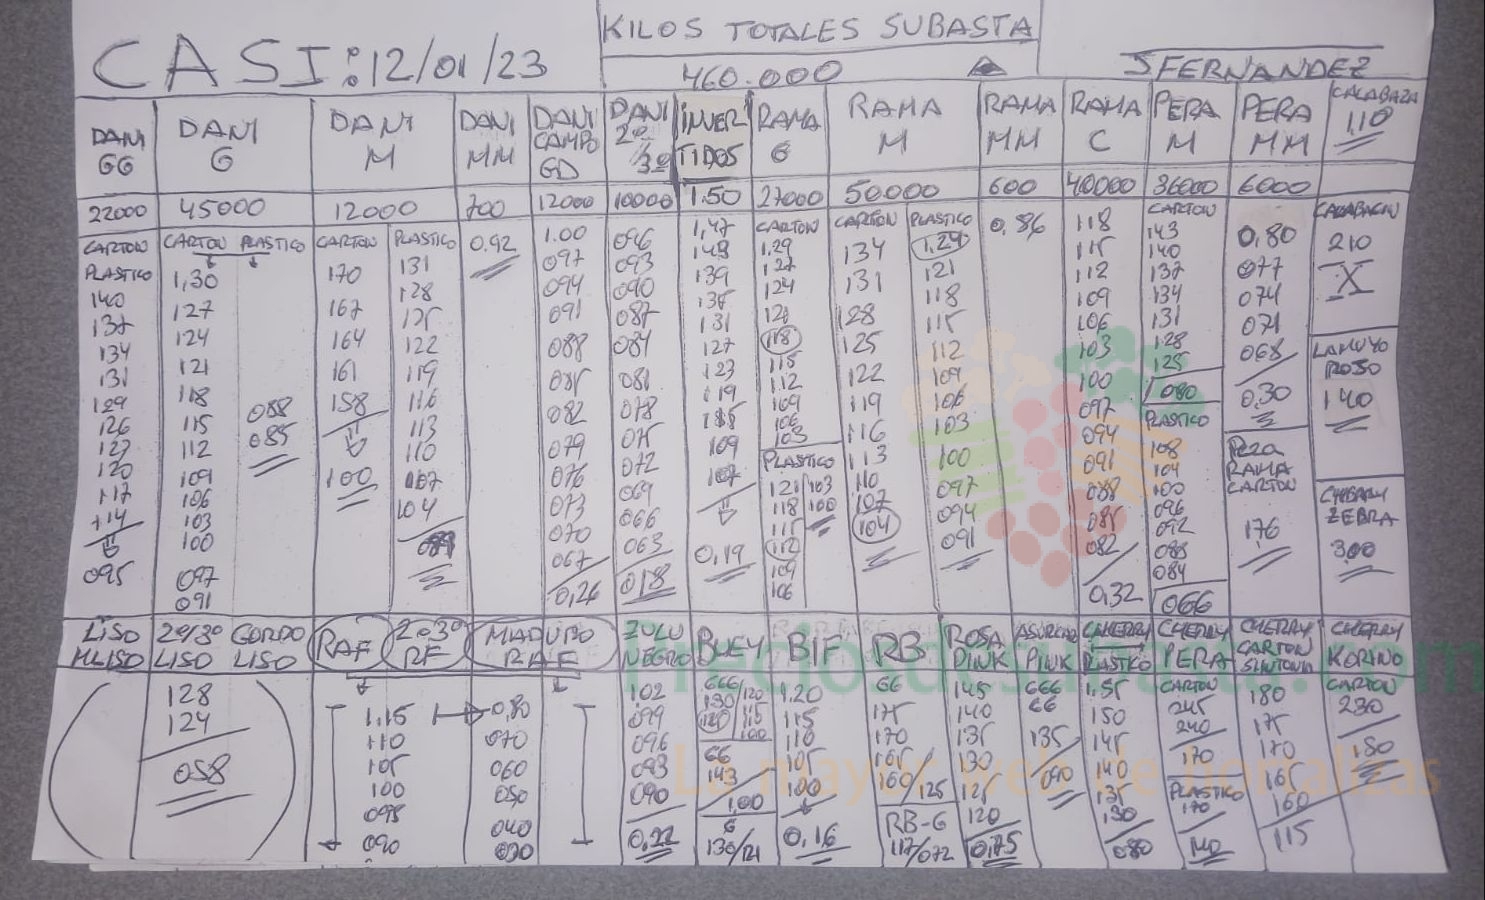 KILOS TOTALES SUBASTA
CASI: 12/01/23
460.000
JFERNANDEZ
DANI GG
DANI G
DANI M
DANI MM
DANI CAMPO GD
DANI 2º/3º
INVERTIDOS
RAMA G
RAMA M
RAMA MM
RAMA C
PERA M
PERA MM
CALABAZA
1,10
22000
45000
12000
700
12000
10000
1.50
27000
50000
600
40000
36000
6000
CARTON
PLASTICO
140
137
134
131
129
126
123
120
117
114
095
CARTON PLASTICO
1,30
127
124
121
118
115
112
109
106
103
100
097
091
088
085
CARTON
170
167
164
161
158
100
PLASTICO
131
128
125
122
119
116
113
110
107
104
0,92
1.00
097
094
091
088
085
082
079
076
073
070
067
0,26
096
093
090
087
084
081
078
075
072
069
066
063
018
1,47
143
139
135
131
127
123
119
115
109
107
0,19
CARTON
1,29
127
124
121
118
115
112
109
106
103
PLASTICO
121
118
115
112
109
106
103
100
CARTON
134
131
128
125
122
119
116
113
110
107
104
PLASTICO
1,24
121
118
115
112
109
106
103
100
097
094
091
0,86
118
115
112
109
106
103
100
097
094
091
088
085
082
0,32
CARTON
143
140
137
134
131
128
125
080
PLASTICO
108
104
100
096
092
088
084
066
0,80
077
074
071
068
0,30
PERA
RAMA
CARTON
176
CALABACIN
210
X
LAMUYO
ROJO
140
CHERRY
ZEBRA
300
LISO
MLISO
2º/3º
LISO
GORDO
LISO
RAF
2º3º
RF
MADURO
RAF
ZULU
NEGRO
BUEY
BIF
RB
ROSA
PINK
ASURCADO
PINK
CHERRY
PLASTICO
CHERRY
PERA
CHERRY
CARTON
SINTONIA
CHERRY
KORINO
128
124
058
1,15
110
105
100
095
090
0,80
070
060
050
040
030
102
099
096
093
090
0,22
666/120
130
115
100
66
143
1,00
G
130/121
1.20
115
110
105
100
0,16
66
175
170
165
160/125
RB-G
117/072
145
140
135
130
125
120
0,75
666
66
135
090
1.55
150
145
140
135
130
080
CARTON
245
240
170
PLASTICO
170
140
180
175
170
165
160
115
CARTON
230
180
Preciodesubasta.com
La mayor web de hortalizas